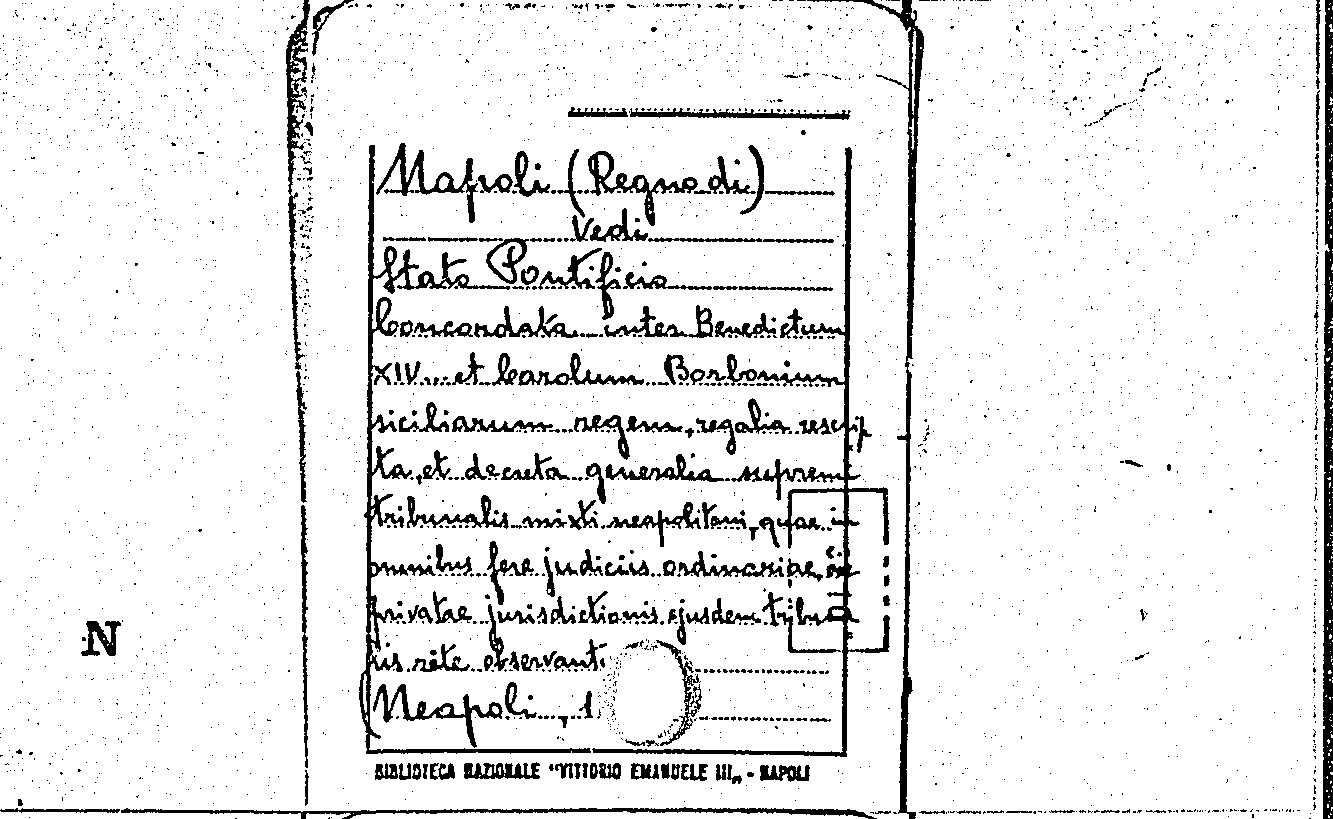 Napoli (Regno di)
Vedi
Stato Pontificio
Concordata inter Benedictum
XIV... et Carolum Borbonium
siciliarum regem, regalia rescrip
ta, et decreta generalia supremi
tribunalis mixti neapolitani, quae in
omnibus fere judiciis ordinariae, ac
privatae jurisdictionis ejusdem tribuna
lis rite observant.
(Neapoli, 1
N
BIBLIOTECA NAZIONALE "VITTORIO EMANUELE III„ - NAPOLI